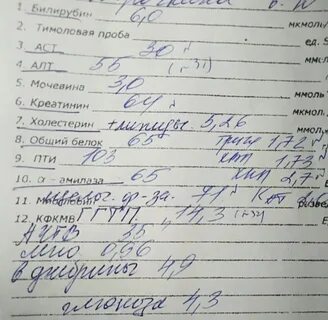 1. Билирубин 6,0 мкмоль
2. Тимоловая проба ед. S
3. АСТ 30
4. АЛТ 55 (г-31)
5. Мочевина 3,0 ммоль
6. Креатинин 64
7. Холестерин + липиды 5,26
8. Общий белок 65 триг 1,72
9. ПТИ 103 1,73
10. α - амилаза 65 2,7
11. Миоглобин 91
12. КФКМВ ГГТП 14,3
АЧТВ 35
МНО 0,96
4,9
глюкоза 4,3